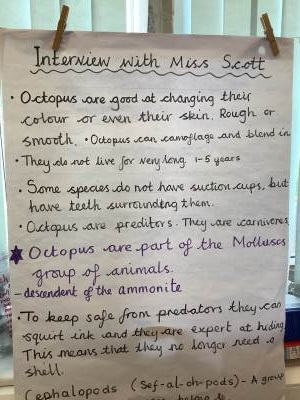 Interview with Miss Scott
• Octopus are good at changing their
colour or even their skin. Rough or
smooth. • Octopus can camoflage and blend in
• They do not live for very long 1-5 years
• Some species do not have suction cups, but
have teeth surrounding them.
• Octopus are preditors. They are carnivores
Octopus are part of the Molluscs
group of animals.
- descendent of the ammonite
• To keep safe from predators they can
squirt ink and they are expert at hiding
This means that they no longer need a
shell.
Cephalopods (Sef-al-oh-pods) - A group